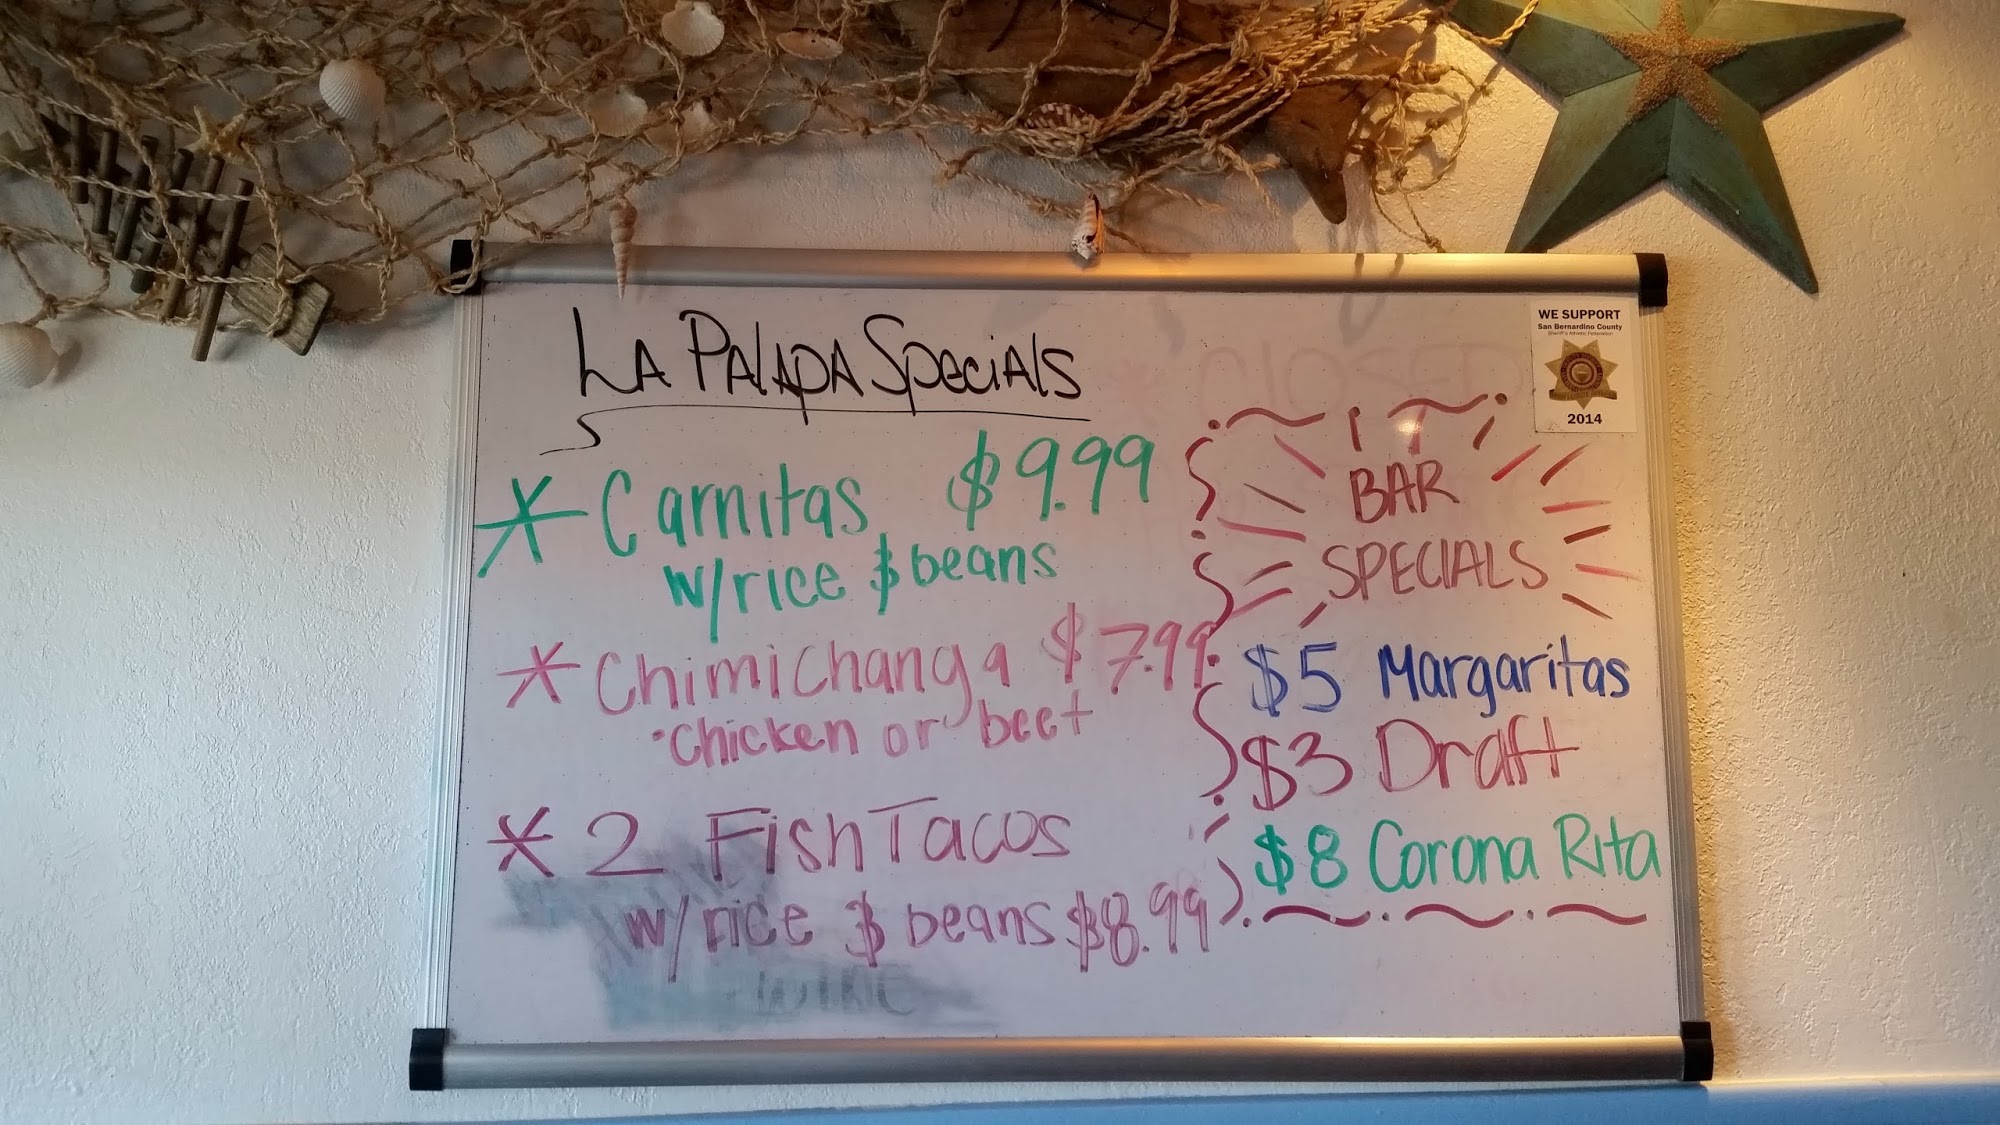 LA PALAPA SPECIALS
* Carnitas $9.99
w/rice $ beans
* Chimichanga $7.99
• Chicken or beef
* 2 Fish Tacos
w/rice $ beans $8.99
BAR
SPECIALS
$5 Margaritas
$3 Draft
$8 Corona Rita
WE SUPPORT
San Bernardino County
Sheriff's Athletic Federation
2014
CLOSED